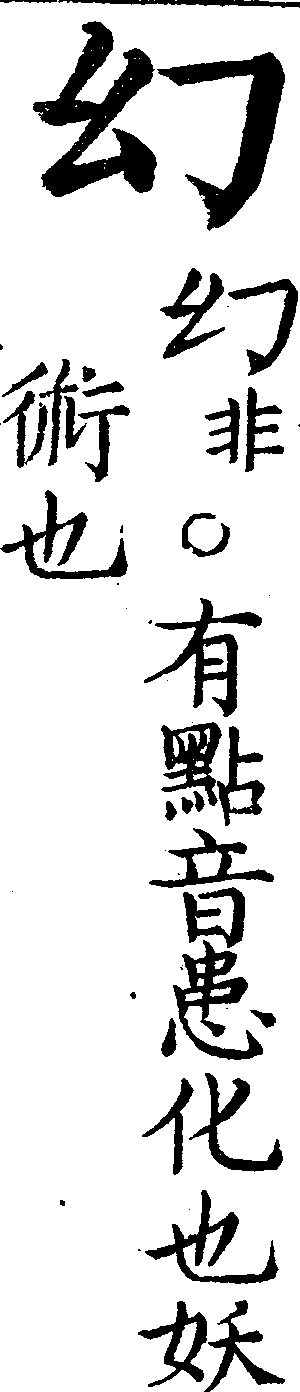 幻
幻非○有點音患化也妖
術也